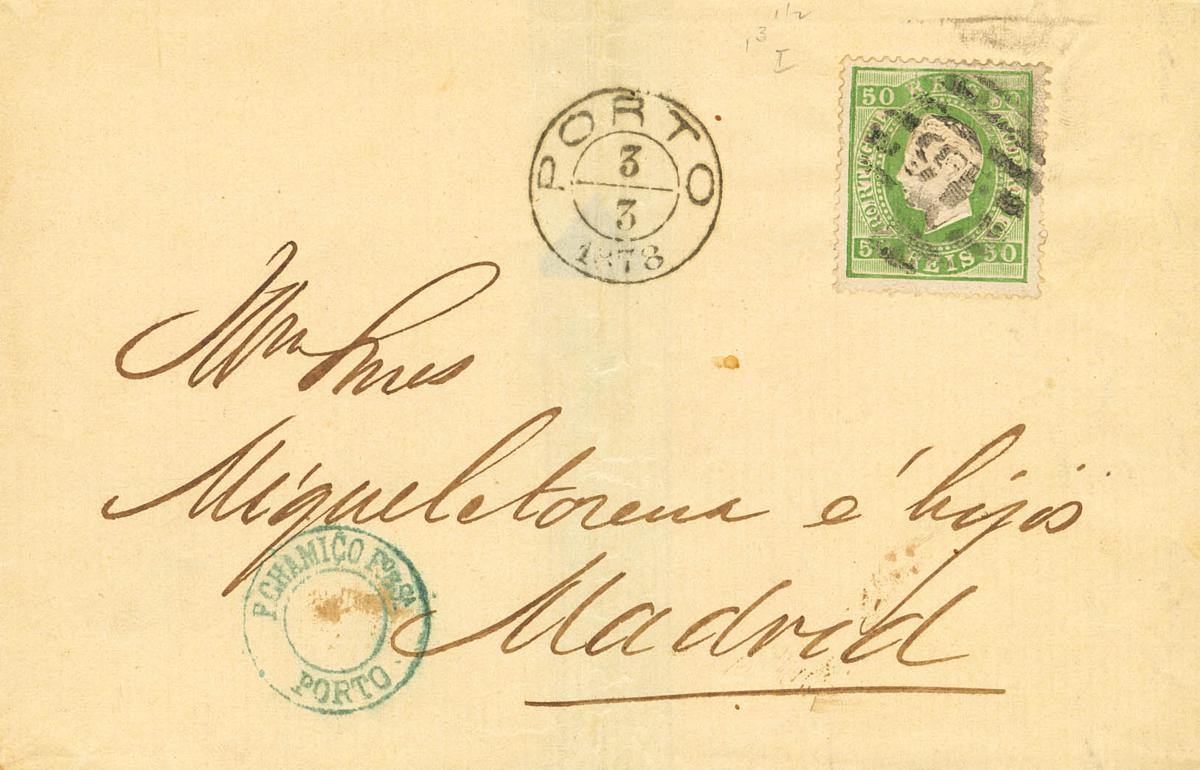 1/2
13
I
PORTO
3
3
1878
50 REIS 50
PORTUGAL
CORREIO
50 REIS 50
Miqueletorena é hijos
Madrid
P. CHAMIÇO Fº & Sª
PORTO